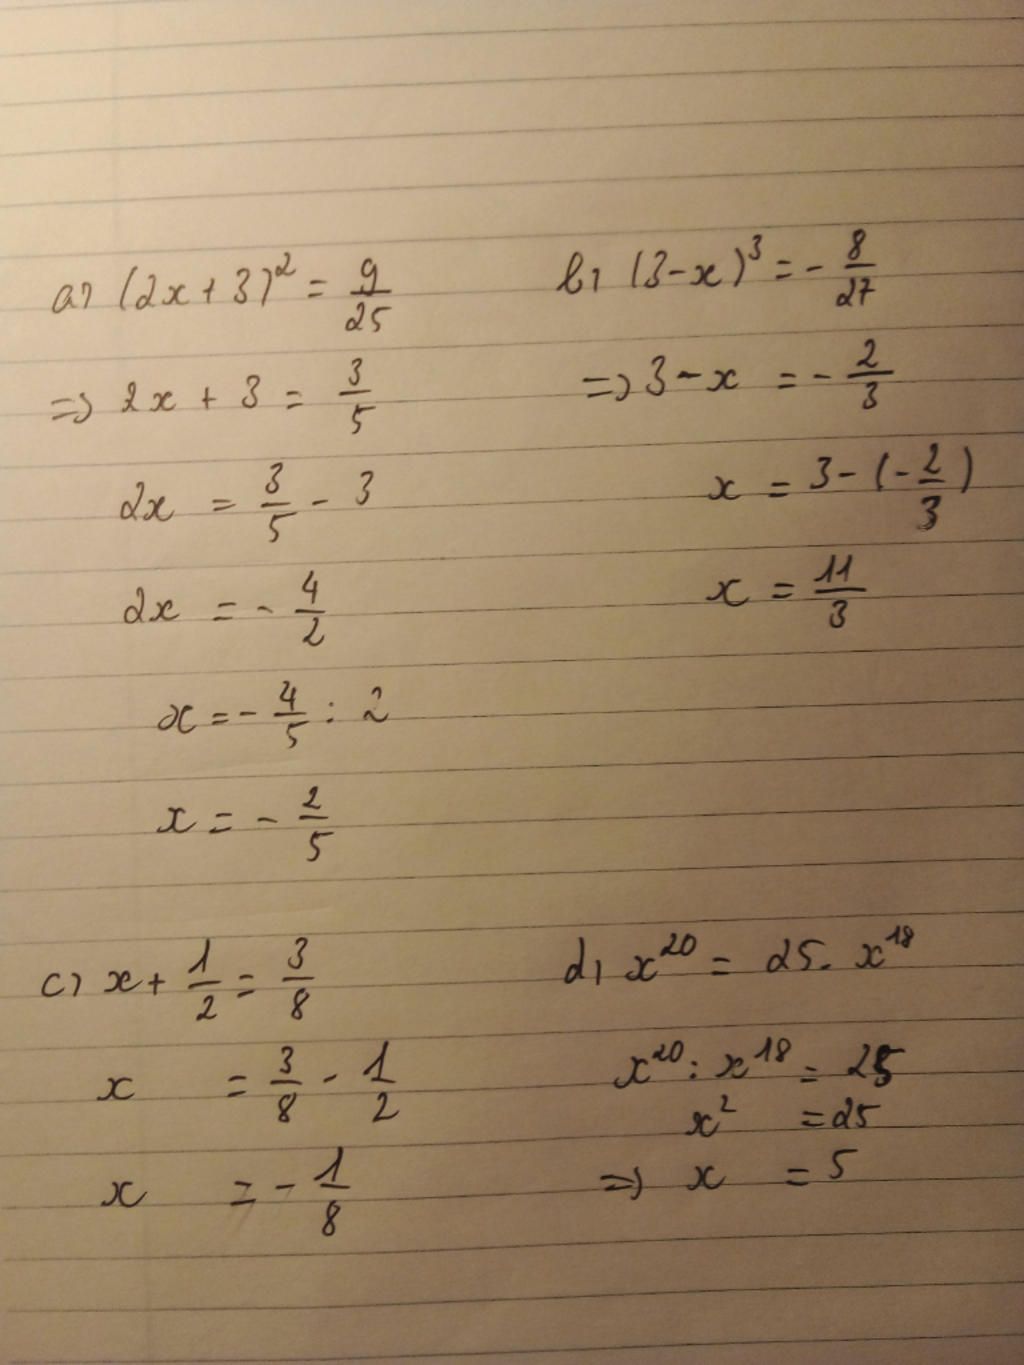 a) (2x + 3)² = 9/25
=> 2x + 3 = 3/5
2x = 3/5 - 3
2x = - 4/2
x = - 4/5 : 2
x = - 2/5
b) (3 - x)³ = - 8/27
=> 3 - x = - 2/3
x = 3 - (- 2/3)
x = 11/3
c) x + 1/2 = 3/8
x = 3/8 - 1/2
x = - 1/8
d) x²⁰ = 25. x¹⁸
x²⁰ : x¹⁸ = 25
x² = 25
=> x = 5